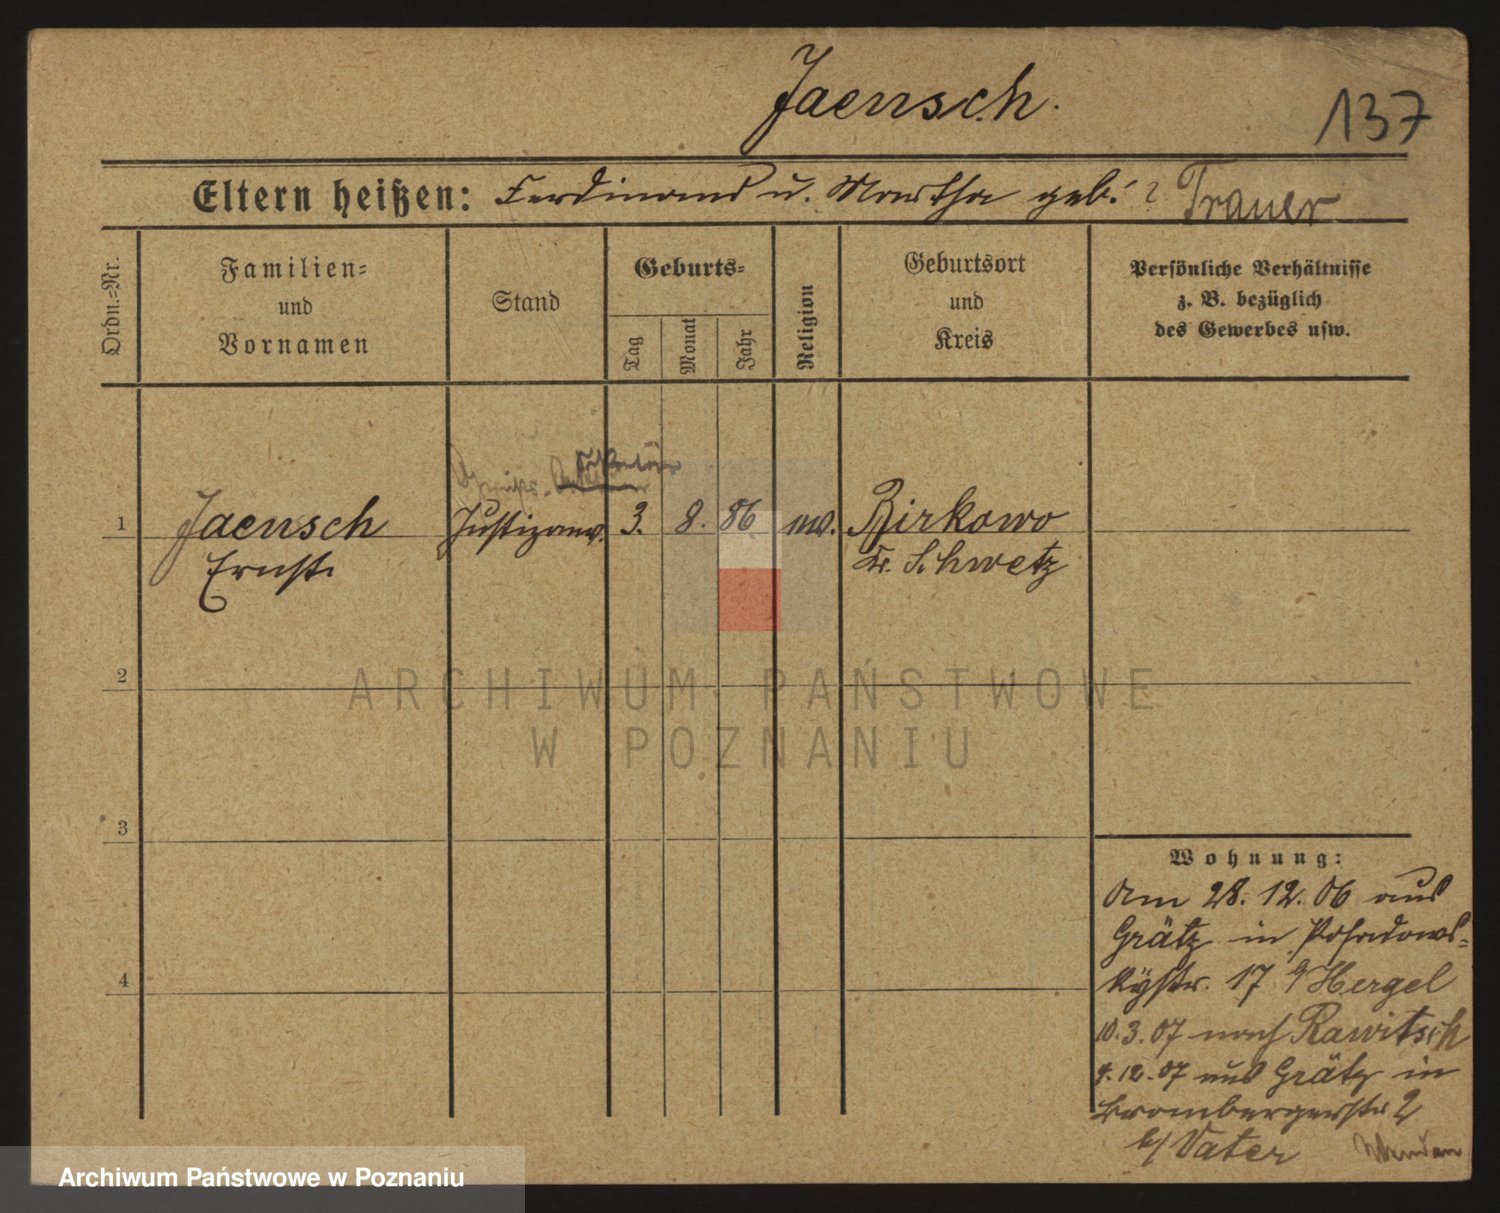 Jaensch.
137
Eltern heißen: Ferdinand u. Martha geb. ? Trauer
Ordn.=Nr.
Familien=
und
Vornamen
Stand
Geburts=
Tag
Monat
Jahr
Religion
Geburtsort
und
Kreis
Persönliche Verhältnisse
z. B. bezüglich
des Gewerbes usw.
1
Jaensch
Ernst
Justizanw.
3.
8.
86
Birkowo
Kr. Schwetz
2
3
4
ARCHIWUM PAŃSTWOWE
W POZNANIU
Wohnung:
Am 28. 12. 06 aus
Grätz in Posadows=
kystr. 17 b/ Hergel
10. 3. 07 nach Rawitsch
4. 12. 07 aus Grätz in
Brombergerstr 2
b/ Vater
Archiwum Państwowe w Poznaniu